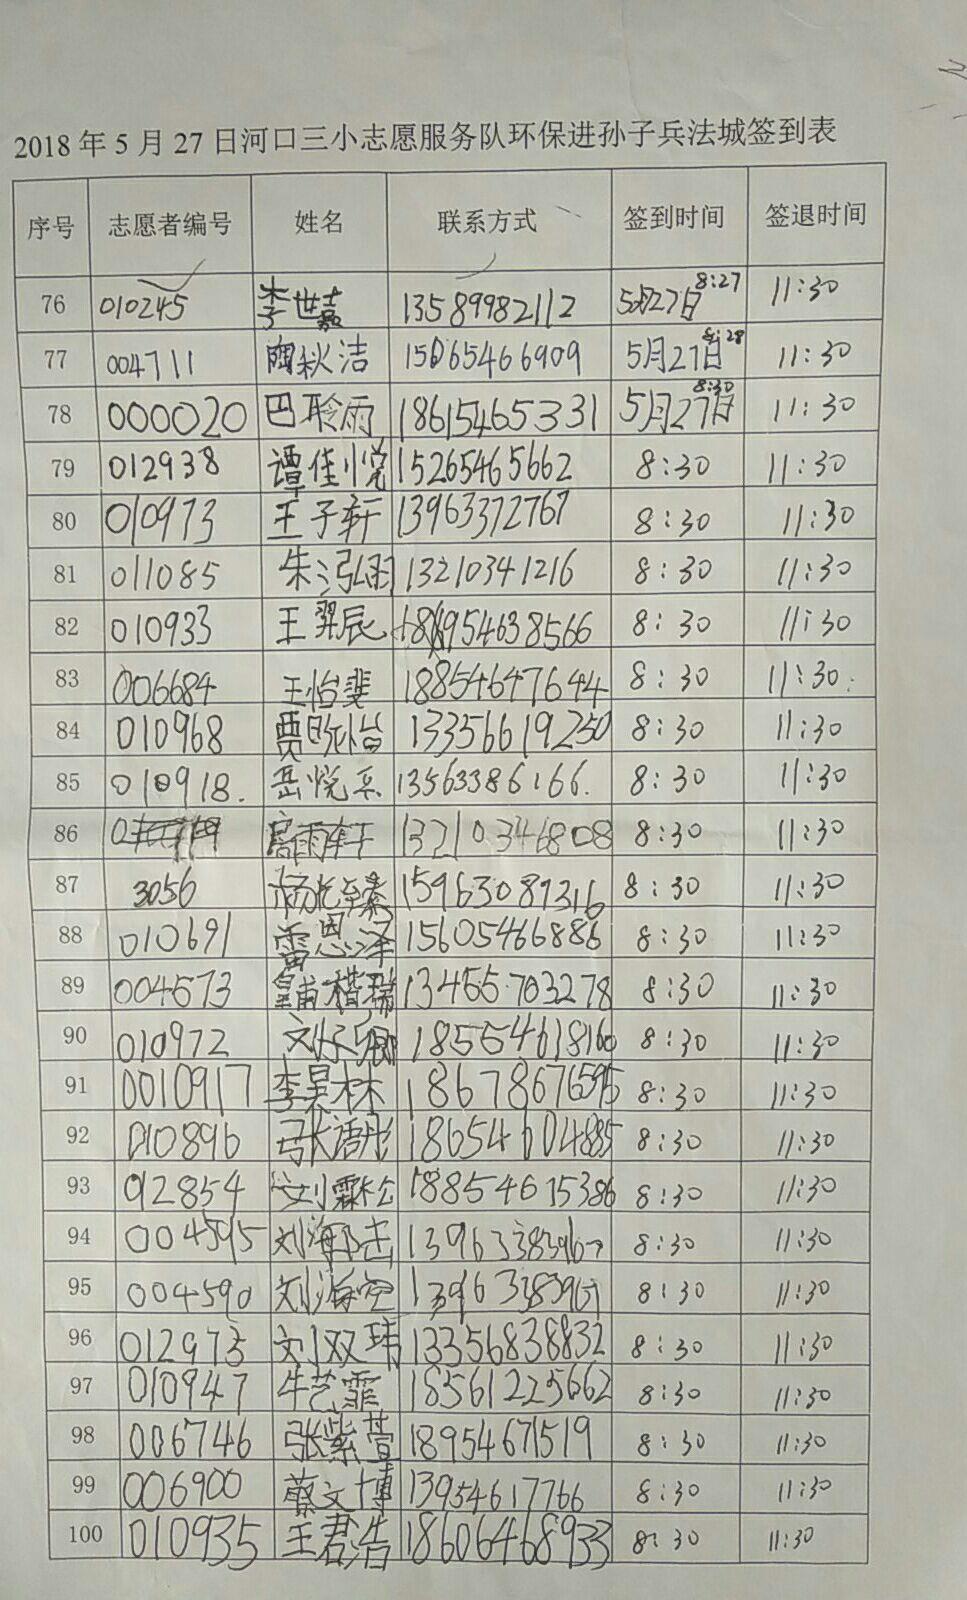 2018年5月27日河口三小志愿服务队环保进孙子兵法城签到表
序号 志愿者编号 姓名 联系方式 签到时间 签退时间
76 010245 李世嘉 13589982112 5月27日8:27 11:30
77 004711 陶秋洁 15065466909 5月27日8:28 11:30
78 000020 巴聆雨 18615465331 5月27日8:30 11:30
79 012938 谭佳悦 15265465662 8:30 11:30
80 010973 王子轩 13963372767 8:30 11:30
81 011085 朱泓雨 13210341216 8:30 11:30
82 010933 王羿辰 18954638566 8:30 11:30
83 006684 王怡斐 18854647644 8:30 11:30
84 010968 贾 怡 13356619250 8:30 11:30
85 010918. 岳悦 13563386166. 8:30 11:30
86 高雨轩 13210346808 8:30 11:30
87 3056 杨 臻 15963089316 8:30 11:30
88 010691 雷恩泽 15605466886 8:30 11:30
89 004573 皇甫楷瑞 13455703278 8:30 11:30
90 010972 刘 卿 18554618160 8:30 11:30
91 0010917 李昊林 18678676595 8:30 11:30
92 010896 张 彤 18654604885 8:30 11:30
93 012854 刘霖松 18854615386 8:30 11:30
94 004595 刘海 13963383967 8:30 11:30
95 004590 刘海空 13963383967 8:30 11:30
96 012973 刘双玮 13356838832 8:30 11:30
97 010947 牛艺霏 18561225662 8:30 11:30
98 006746 张紫萱 18954671519 8:30 11:30
99 006900 蔡文博 13954617766 8:30 11:30
100 010935 王君浩 18606468933 8:30 11:30